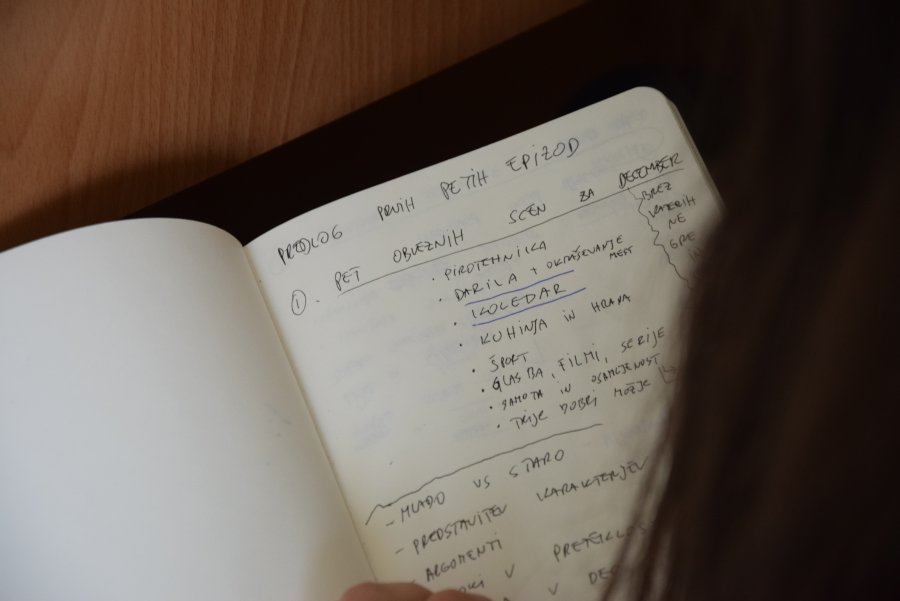 PREDLOG PRVIH PETIH EPIZOD
1. PET OBVEZNIH SCEN ZA DECEMBER
BREZ
KATERIH
NE
GRE
• PIROTEHNIKA
• DARILA + OKRAŠEVANJE
MEST
• KOLEDAR
• KUHINJA IN HRANA
• ŠPORT
• GLASBA, FILMI, SERIJE
• SAMOTA IN OSAMLJENOST
• TRIJE DOBRI MOŽJE
- MLADO VS STARO
- PREDSTAVITEV KARAKTERJEV
- ARGOMENTI
V PRETEKLOS
V DEC